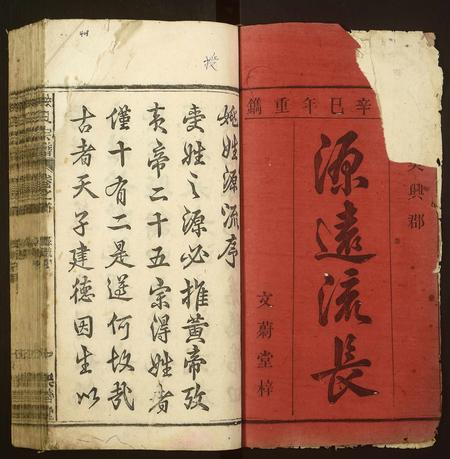 辛巳年重鐫
吳興郡
源遠流長
文蔚堂梓
姚姓源流序
受姓之源必推黃帝攷
黃帝二十五宗得姓者
僅十有二是遵何故哉
古者天子建德因生以